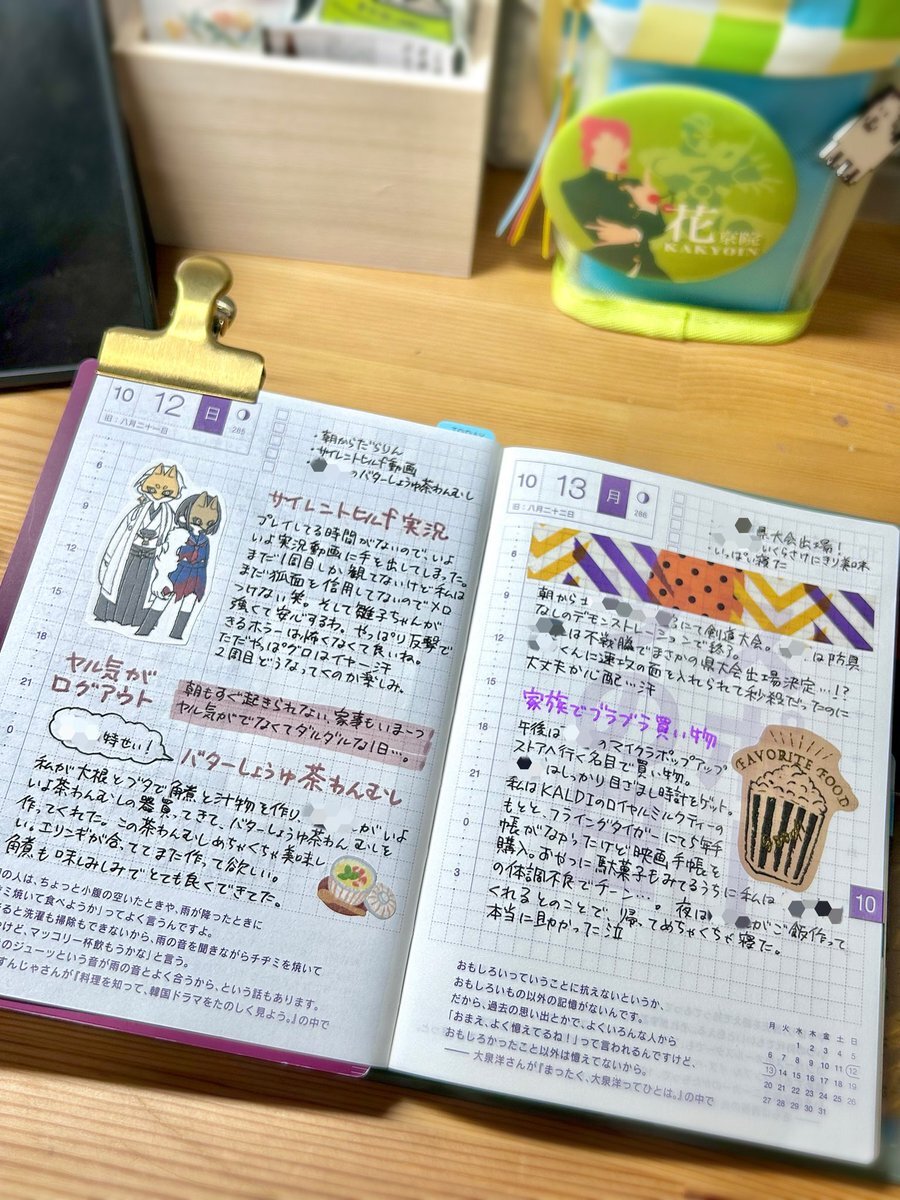 花京院
KAKYOIN
10 12 日
旧:八月二十一日
285
・朝からだらりん
・サイレントヒルf動画
のバターしょうゆ茶わんむし
サイレントヒルf実況
プレイしてる時間がないので、いよ
いよ実況動画に手を出してしまった。
まだ1周目しか観てないけど私は
まだ狐面を信用してないのでメロ
つけない笑。そして雛子ちゃんが
強くて安心するわ。やっぱり反撃で
きるホラーは怖くなくて良いね。
ただやっぱグロはイヤー汗
2周目どうなってくのか楽しみ。
ヤル気が
ログアウト
朝もすぐ起きられない、家事もいまいつ
ヤル気がでなくてダルダルな1日…。
特せい!
バターしょうゆ茶わんむし
私が大根とブタで角煮と汁物を作り
がいよ
いよ茶わんむしの器買ってきて、バターしょうゆ茶わんむしを
作ってくれた。この茶わんむしめちゃくちゃ美味し
い。エリンギが合ってて また作って欲しい。
角煮も味しみしみでとても良くできてた。
の人は、ちょっと小腹の空いたときや、雨が降ったときに
ミ焼いて食べようか」ってよく言うんですよ。
ると洗濯も掃除もできないから、雨の音を聞きながらチヂミを焼いて
けど、マッコリ一杯飲もうかな」と言う。
のジューッという音が雨の音とよく合うから、という話もあります。
すんじゃさんが『料理を知って、韓国ドラマをたのしく見よう。』の中で
TODAY
10 13 月
旧:八月二十二日
286
県大会出場!
いくらさけにぎり美味
・いっぱい寝た
朝から
にて剣道大会。
は防具
なしのデモンストレーションで終了。
は不戦勝でまさかの県大会出場決定…!?
くんに速攻の面を入れられて秒殺だったのに
大丈夫か心配…汗
家族でブラブラ買い物
午後は
のマイクラポップアップ
ストアへ行く名目で買い物。
はしっかり目ざまし時計をゲット。
私はKALDIのロイヤルミルクティーの
もとと、フライングタイガーにて5年手
帳がなかったけど映画手帳を
購入。おやつに駄菓子もみてるうちに私は
の体調不良でチーン…。夜は
がご飯作って
くれるとのことで、帰ってめちゃくちゃ寝た。
本当に助かった泣
FAVORITE FOOD
10
おもしろいっていうことに抗えないというか、
おもしろいもの以外の記憶がないんです。
だから、過去の思い出とかで、よくいろんな人から
「おまえ、よく憶えてるね!」って言われるんですけど、
おもしろかったこと以外は憶えてないから。
── 大泉洋さんが『まったく、大泉洋ってひとは。』の中で
月 火 水 木 金 土 日
1 2 3 4 5
6 7 8 9 10 11 12
13 14 15 16 17 18 19
20 21 22 23 24 25 26
27 28 29 30 31